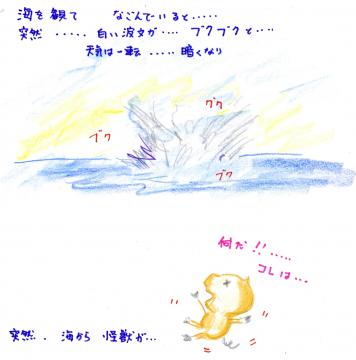 海を観て なごんでいると.....
突然 ..... 白い波文が.... ブクブクと....
天気は一転 ..... 暗くなり
ブク
ブク
ブク
何だ!!.....
コレは...
突然. 海から 怪獣が...